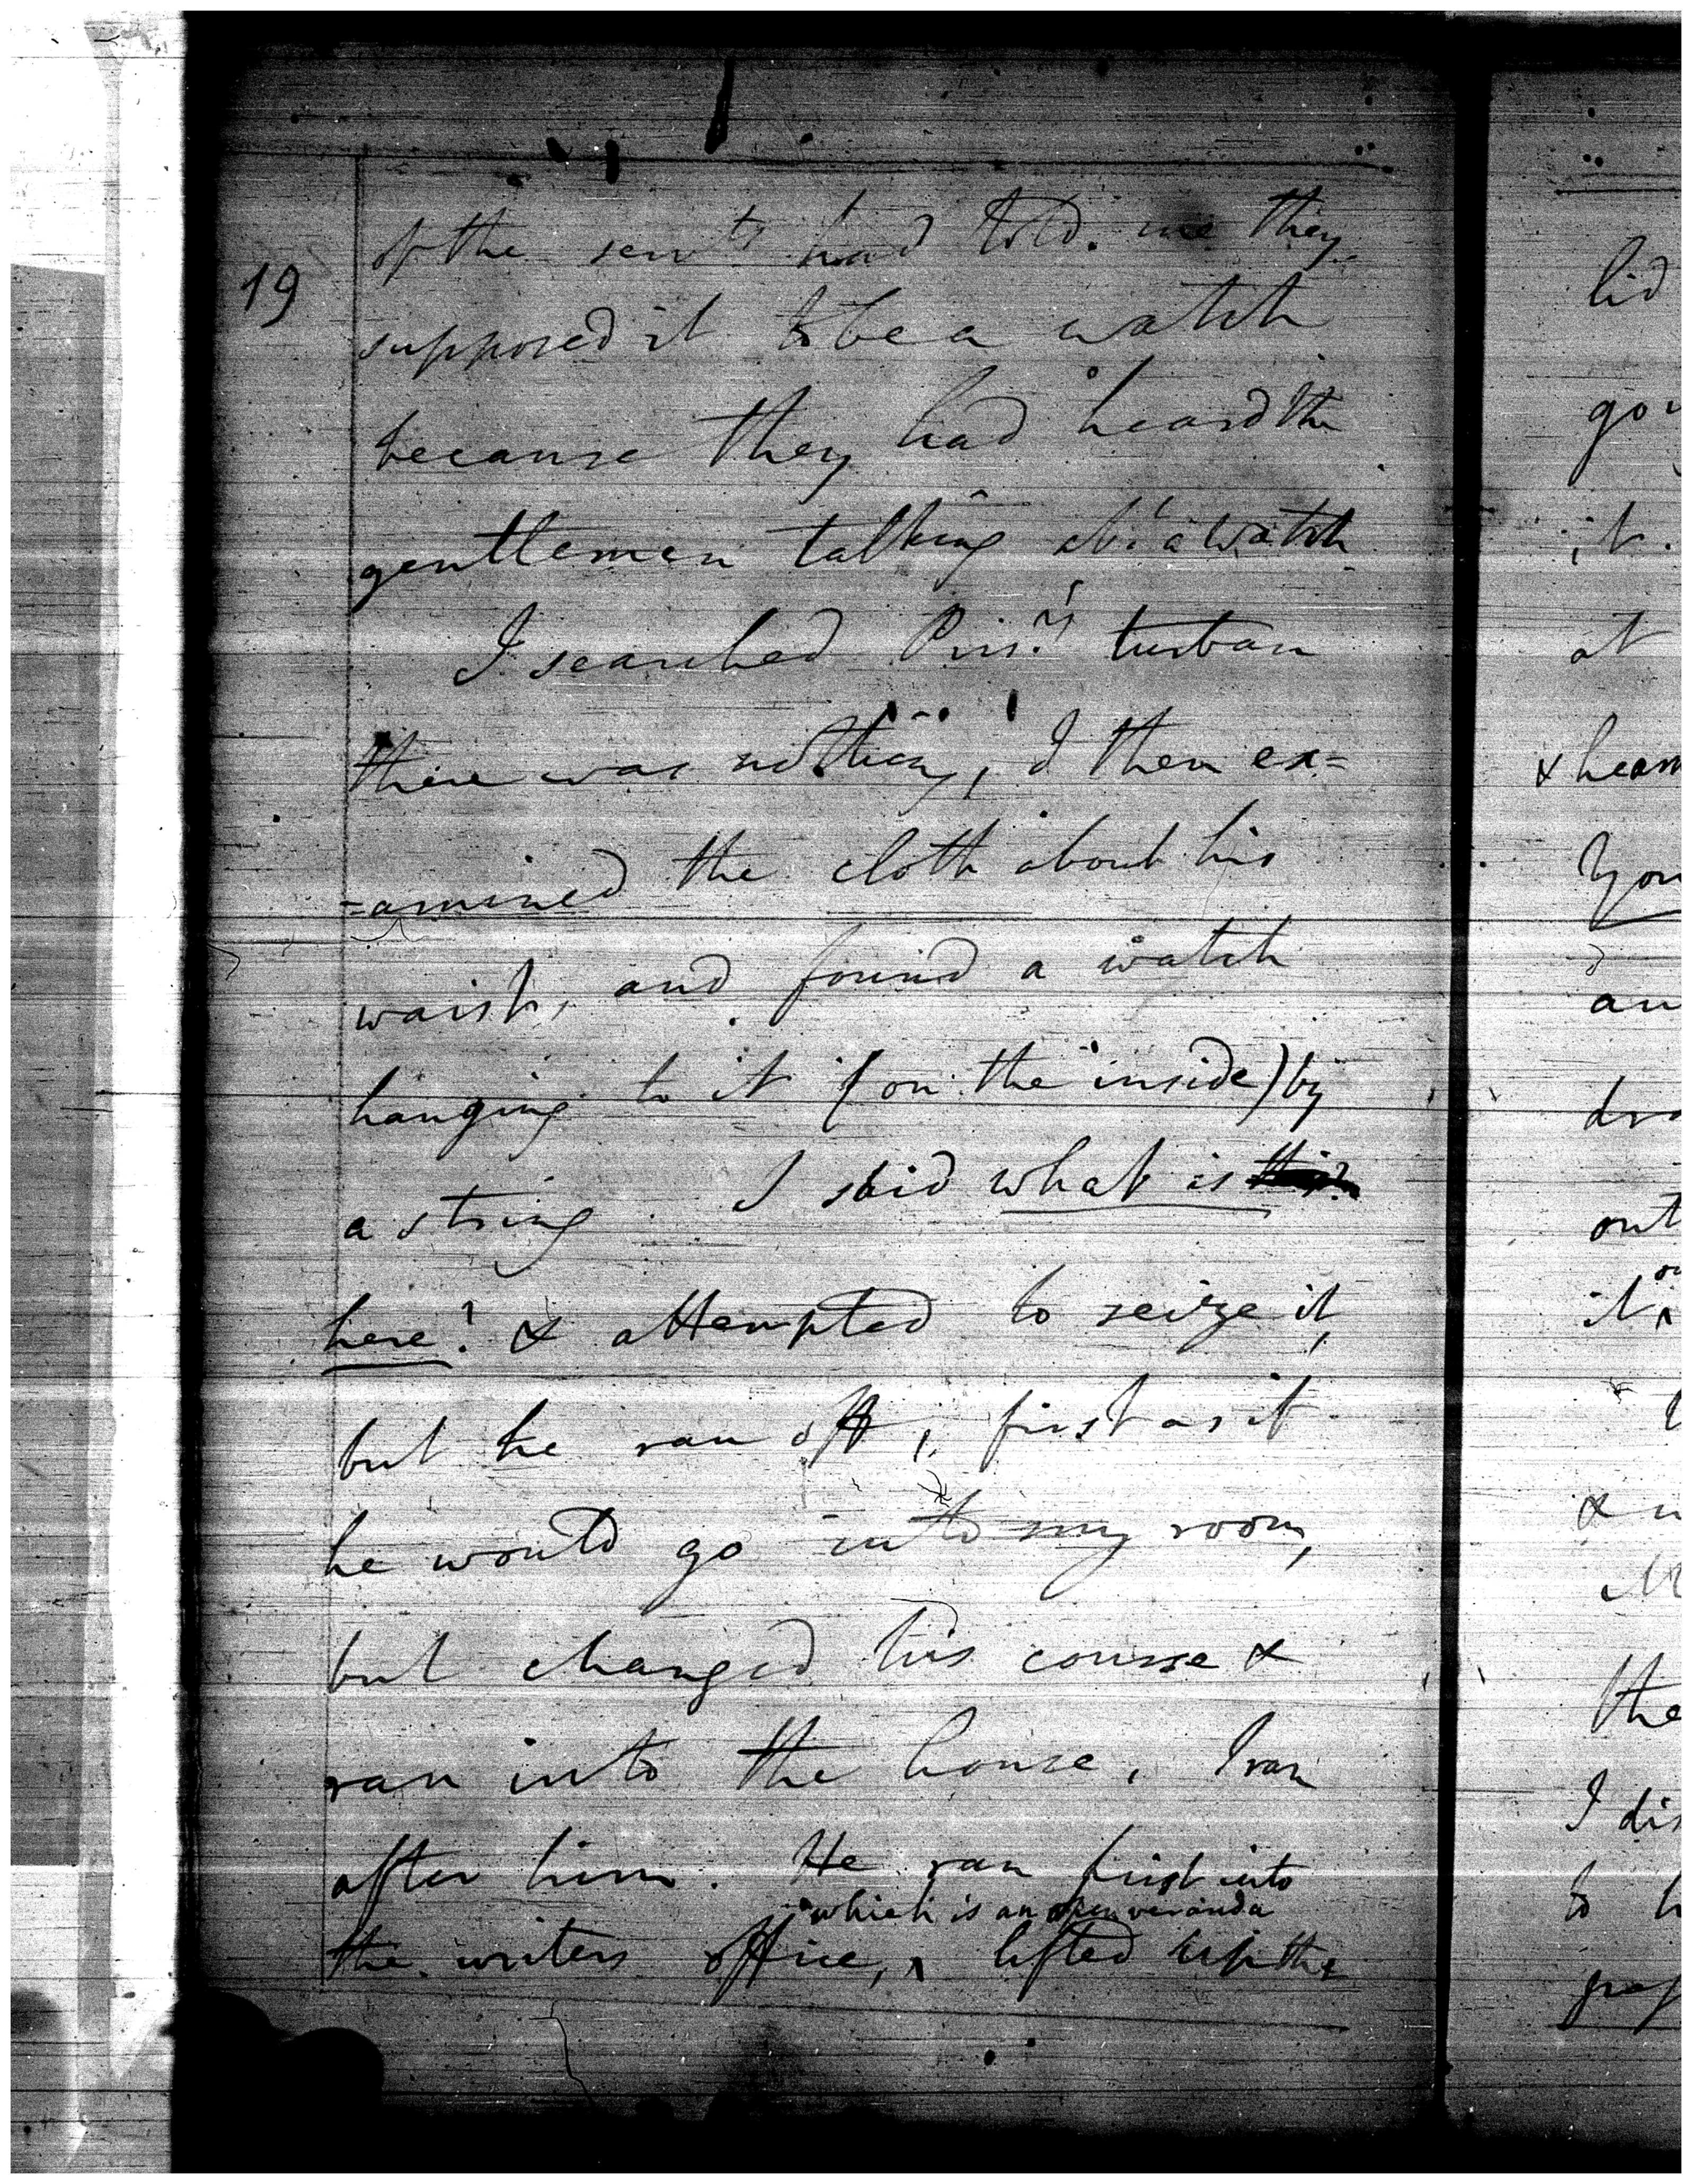 19
of the servts had told me they
supposed it to be a watch
because they had heard the
gentlemen talking abt a watch
I searched Prisrs turban
there was nothing, I then ex=
=amined the cloth about his
waist, and found a watch
hanging to it (on the inside) by
a string. I said what is this?
here? & attempted to seize it,
but he ran off, first as if
he would go into my room,
but changed his course &
ran into the house, I ran
after him. He ran first into
which is an open veranda
the writers office, ‸ lifted up the
hid
it.
at
& hear
You
an
dra
out
it
the
I dis
to h